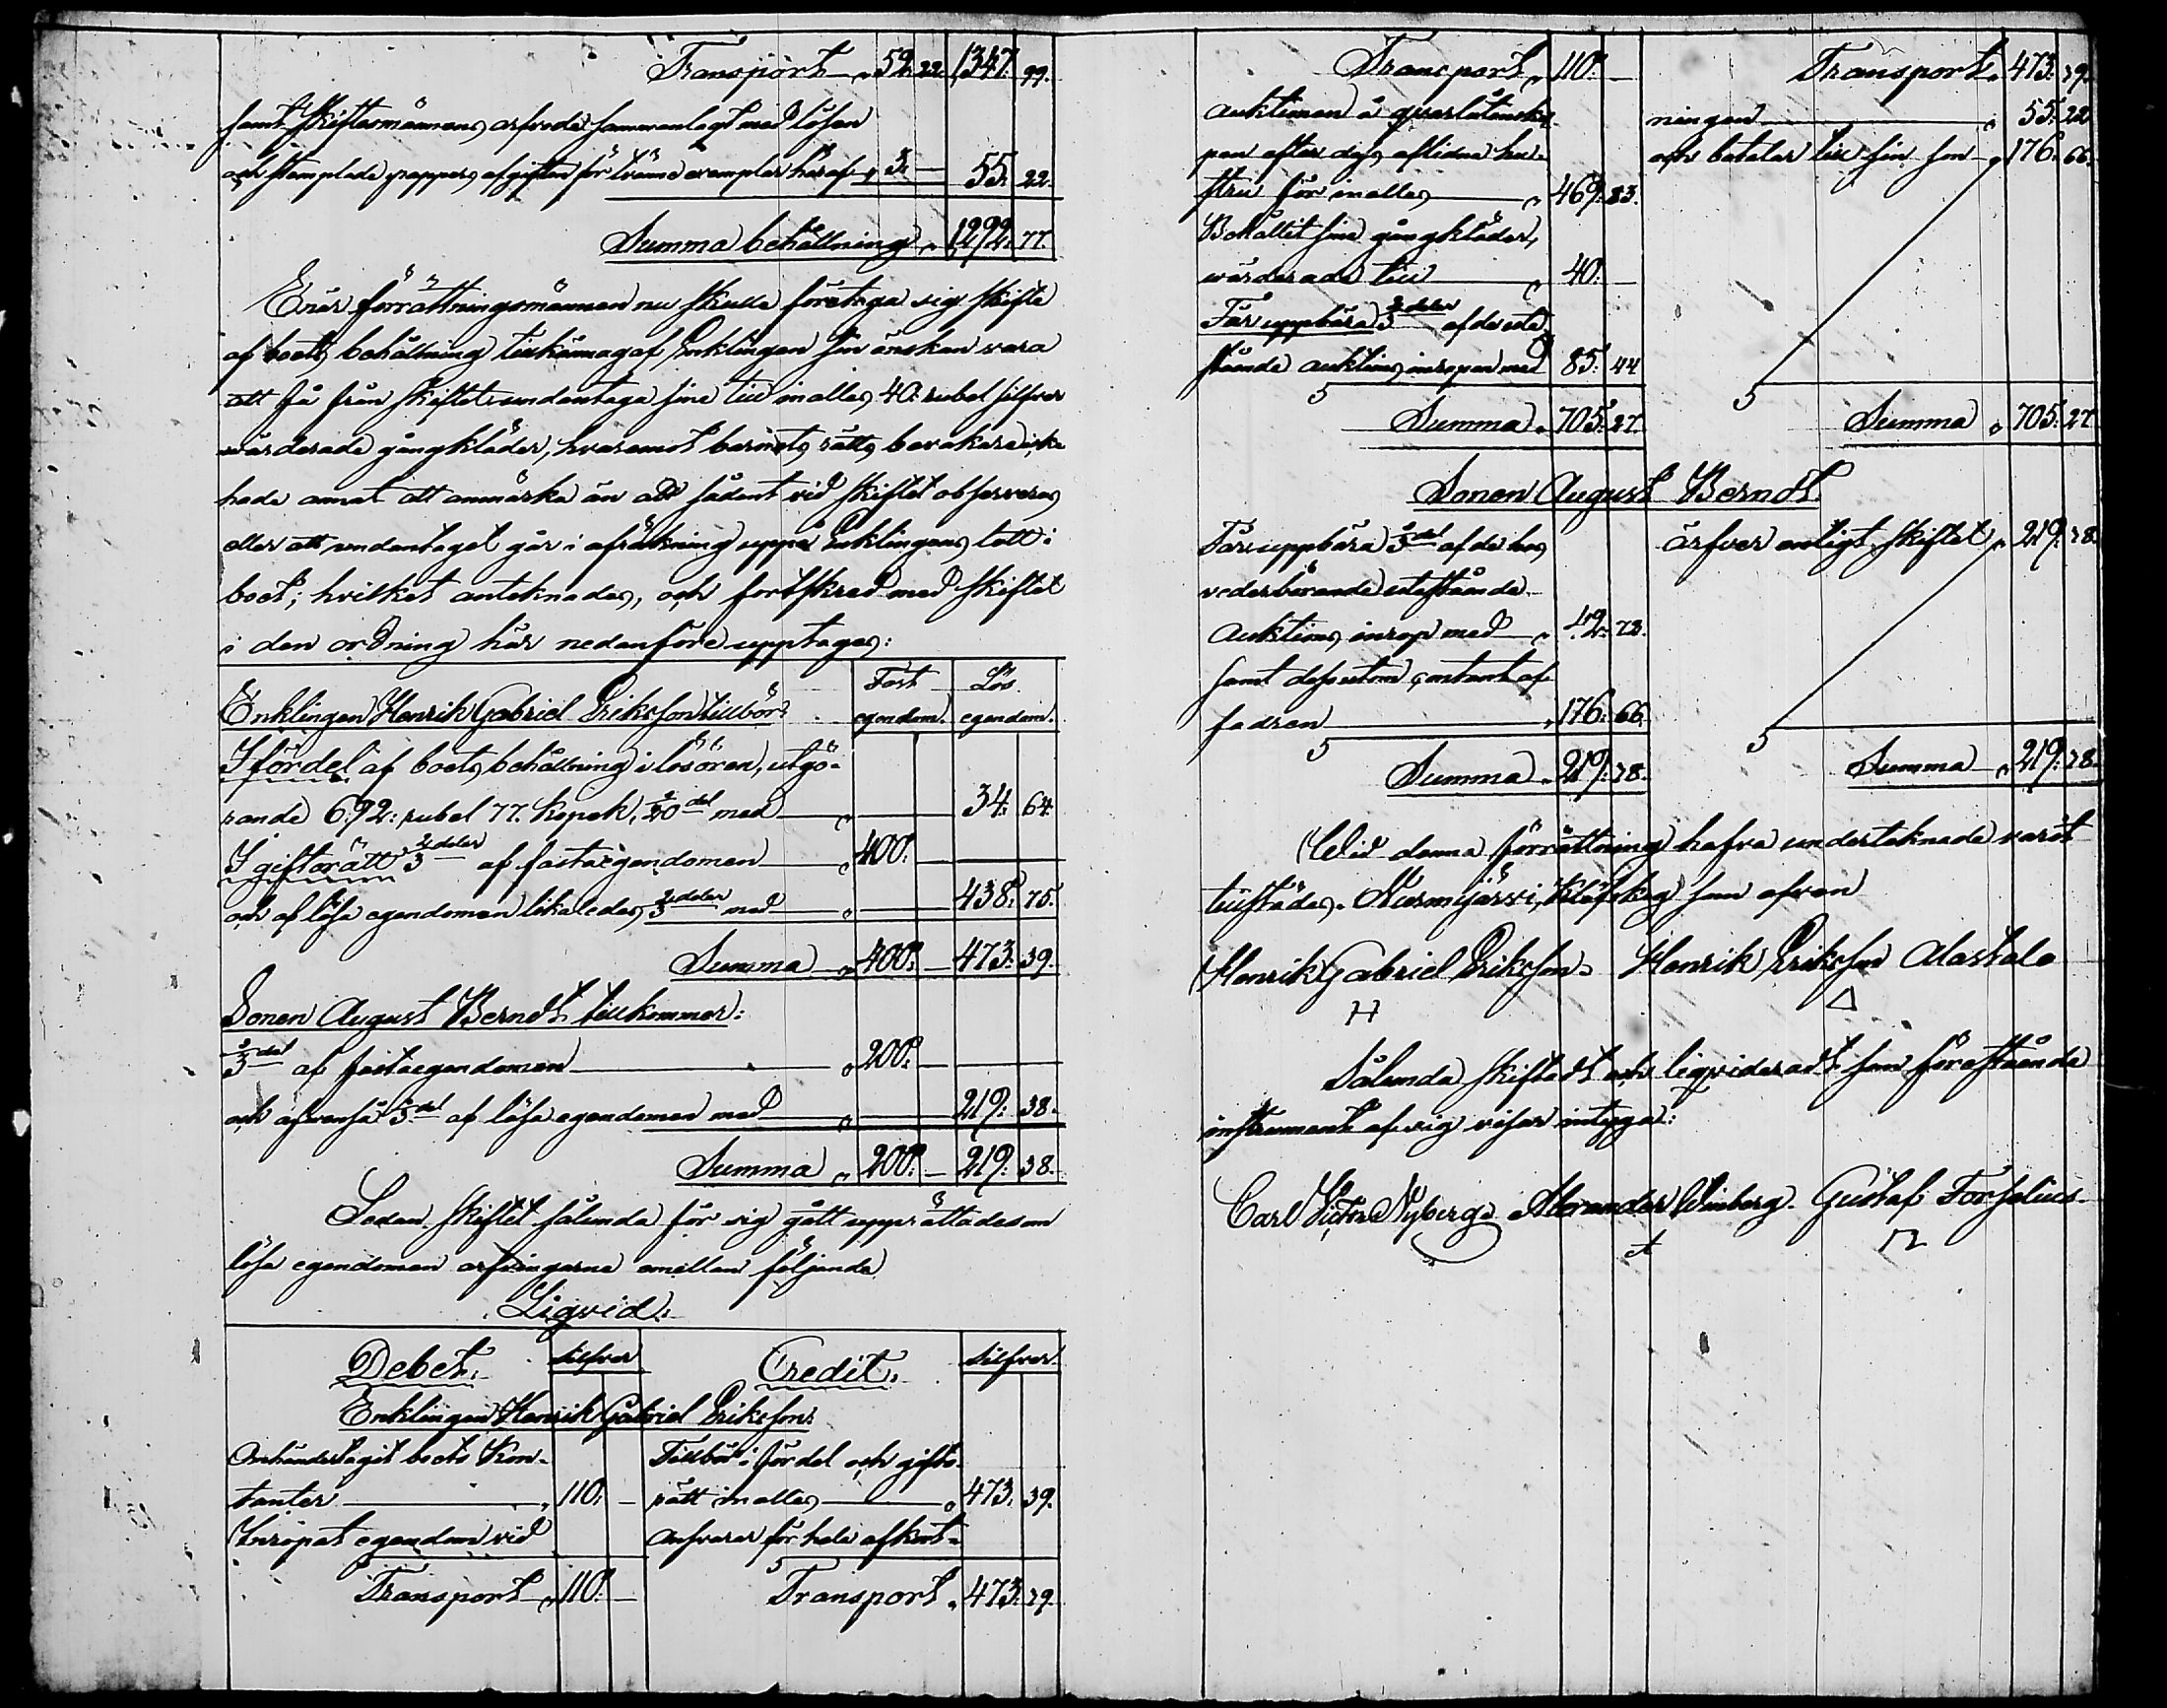 Transport „ 52. 22. 1347. 99.
samt Skiftesmännens arfvode sammanlagt med lösen
och stemplade pappers afgiften för tvänne exemplar häraf „ 3. — 55. 22.
Summa behållning „ 1292. 77.
Enär förrättningsmännen nu skulle företaga sig skifte
af boets behållning tillkännagaf Enklingen sin önskan vara
att få från skiftet undantaga sina till inalles 40. rubel silfver
wärderade gångkläder, hvaremot barnets rätts bevakare icke
hade annat att anmärka än att sådant vid skiftet observeras
eller att undantaget går i afräkning uppå Enklingens lott i
boet; hvilket antecknades, och fortskred med skiftet
i den ordning här nedanföre upptages:
Enklingen Henrik Gabriel Eriksson tillbör: Fast egendom. Lös egendom.
I fördel af boets behållning i lösören, utgö-
rande 692: rubel 77. Kopek, 1/20 del med „ 34. 64.
I giftorätt 2/3 delar af fasta egendomen „ 400. —
och af lösa egendomen likaledes 2/3 delar med „ 438. 75.
Summa „ 400. — 473. 39.
Sonen August Berndt tillkommer:
1/3 del af fastaegendomen „ 200. —
och äfvenså 1/3 del af lösa egendomen med „ 219. 38.
Summa „ 200. — 219. 38.
Sedan Skiftet sålunda för sig gått upprättades om
lösa egendomen arfvingarne emellan följande
Liqvid:
Debet. Silfver Credit. Silfver.
Enklingen Henrik Gabriel Eriksson:
Omhändertagit boets Kon- Tillbör i fördel och gifto-
tanter „ 110. — rätt inalles „ 473. 39.
Inropat egendom vid Ansvarar för hela afkort-
Transport „ 110. — Transport „ 473. 39.
Transport „ 110. — Transport „ 473. 39.
auktionen å qvarlåtenska- ningen „ 55. 22
pen efter dess aflidna hu- och betalar till sin son „ 176. 66.
stru för inalles „ 469. 83.
Behållit sina gångkläder,
wärderade till „ 40. —
Får uppbära 2/3 delar af de ute
stående auktions inropen med 85. 44
Summa „ 705. 27. Summa „ 705. 27.
Sonen August Berndt.
Får uppbära 1/3 del af de hos ärfver enligt skiftet „ 219. 38.
vederbörande utestående
Auktions inrop med „ 42. 72.
samt dessutom contant af
fadren „ 176. 66.
Summa „ 219. 38. Summa „ 219. 38.
Wid denna förrättning hafva undertecknade varit
tillstädes. Nurmijärvi, Klöfskog som ofvan
Henrik Gabriel Eriksson. Henrik Eriksson Alastalo
Sålunda skiftadt och liqvideradt som förestående
instrument af sig visar intyga:
Carl Victor Nyberg. Alexander Winberg. Gustaf Forselius